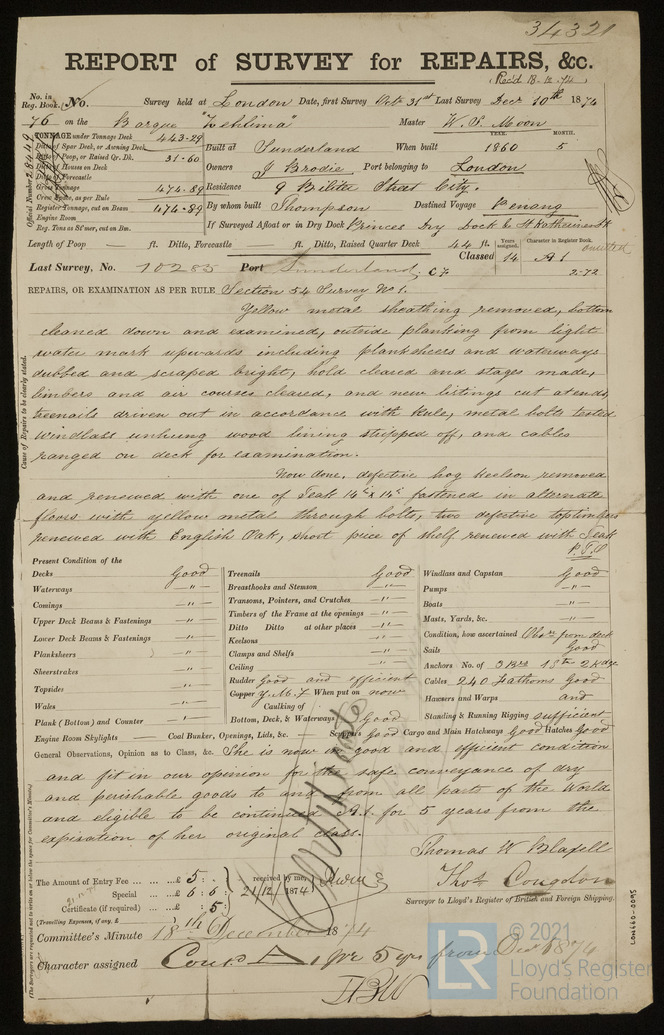 34321
REPORT of SURVEY for REPAIRS, &c.
(Rec'd 18-12-74)
No. in Reg. Book. No. Survey held at London Date, first Survey Oct 31st Last Survey Dec 10th 1874
76 on the Barque "Zehlima" Master W. S. Moon
TONNAGE under Tonnage Deck 443-29
Ditto of Spar Deck, or Awning Deck
Ditto of Poop, or Raised Qr. Dk. 31-60
Ditto of Houses on Deck
Ditto of Forecastle
Gross Tonnage 474-89
Crew Space, as per Rule
Register Tonnage, cut on Beam 474-89
Engine Room
Reg. Tons as St'mer, cut on Bm.
Official Number 28449
YEAR. MONTH.
Built at Sunderland When built 1860 5
Owners J Brodie Port belonging to London
Residence 9 Billiter Street City.
By whom built Thompson Destined Voyage Penang
If Surveyed Afloat or in Dry Dock Princes Dry Dock & St Katherines Dk
Length of Poop — ft. Ditto, Forecastle — ft. Ditto, Raised Quarter Deck 44 ft.
Years assigned. Character in Register Book.
Classed 14 A 1
2-72
Last Survey, No. 10285 Port Sunderland
REPAIRS, OR EXAMINATION AS PER RULE Section 54 Survey No 1.
Cause of Repairs to be clearly stated.
Yellow metal sheathing removed, bottom
cleaned down and examined, outside planking from light
water mark upwards including planksheers and waterways
dubbed and scraped bright, hold cleared and stages made,
limbers and air courses cleared, and new listings cut at ends,
treenails driven out in accordance with Rule, metal bolts tested
windlass unhung wood lining stripped off, and cables
ranged on deck for examination.
Now done, defective hog keelson removed
and renewed with one of Teak 14 x 14 fastened in alternate
floors with yellow metal through bolts, two defective toptimbers
renewed with English Oak, short piece of shelf renewed with Teak
P.T.O
Present Condition of the
Decks Good
Waterways —"—
Comings —"—
Upper Deck Beams & Fastenings —"—
Lower Deck Beams & Fastenings —"—
Planksheers —"—
Sheerstrakes —"—
Topsides —"—
Wales —"—
Plank (Bottom) and Counter —"—
Treenails Good
Breasthooks and Stemson —"—
Transoms, Pointers, and Crutches —"—
Timbers of the Frame at the openings —"—
Ditto Ditto at other places —"—
Keelsons —"—
Clamps and Shelfs —"—
Ceiling —"—
Rudder Good and efficient
Copper Y. M. F When put on now
Caulking of
Bottom, Deck, & Waterways Good
Windlass and Capstan Good
Pumps —"—
Boats —"—
Masts, Yards, &c. —"—
Condition, how ascertained Obsn from deck
Sails Good
Anchors No. of 3 Brs 1 Stm 2 Kdge
Cables 240 Fathoms Good
Hawsers and Warps and
Standing & Running Rigging sufficient
Engine Room Skylights — Coal Bunker, Openings, Lids, &c. — Scuppers Good Cargo and Main Hatchways Good Hatches Good
General Observations, Opinion as to Class, &c. She is now in good and efficient condition
and fit in our opinion for the safe conveyance of dry
and perishable goods to and from all parts of the World
and eligible to be continued A.1. for 5 years from the
expiration of her original class.
Thomas W Blaxell
Thos Congdon
Surveyor to Lloyd's Register of British and Foreign Shipping.
The Amount of Entry Fee ... ... £ 5 : -
Special ... ... £ 6 : 6
Certificate (if required) ... £ : 5
(Travelling Expenses, if any, £
received by me,
21/12/1874
Committee's Minute 18th December 1874
Character assigned Cont A 1 for 5 yrs from Decr 1874
LON660-0095
© 2021
LR
Lloyd's Register
Foundation